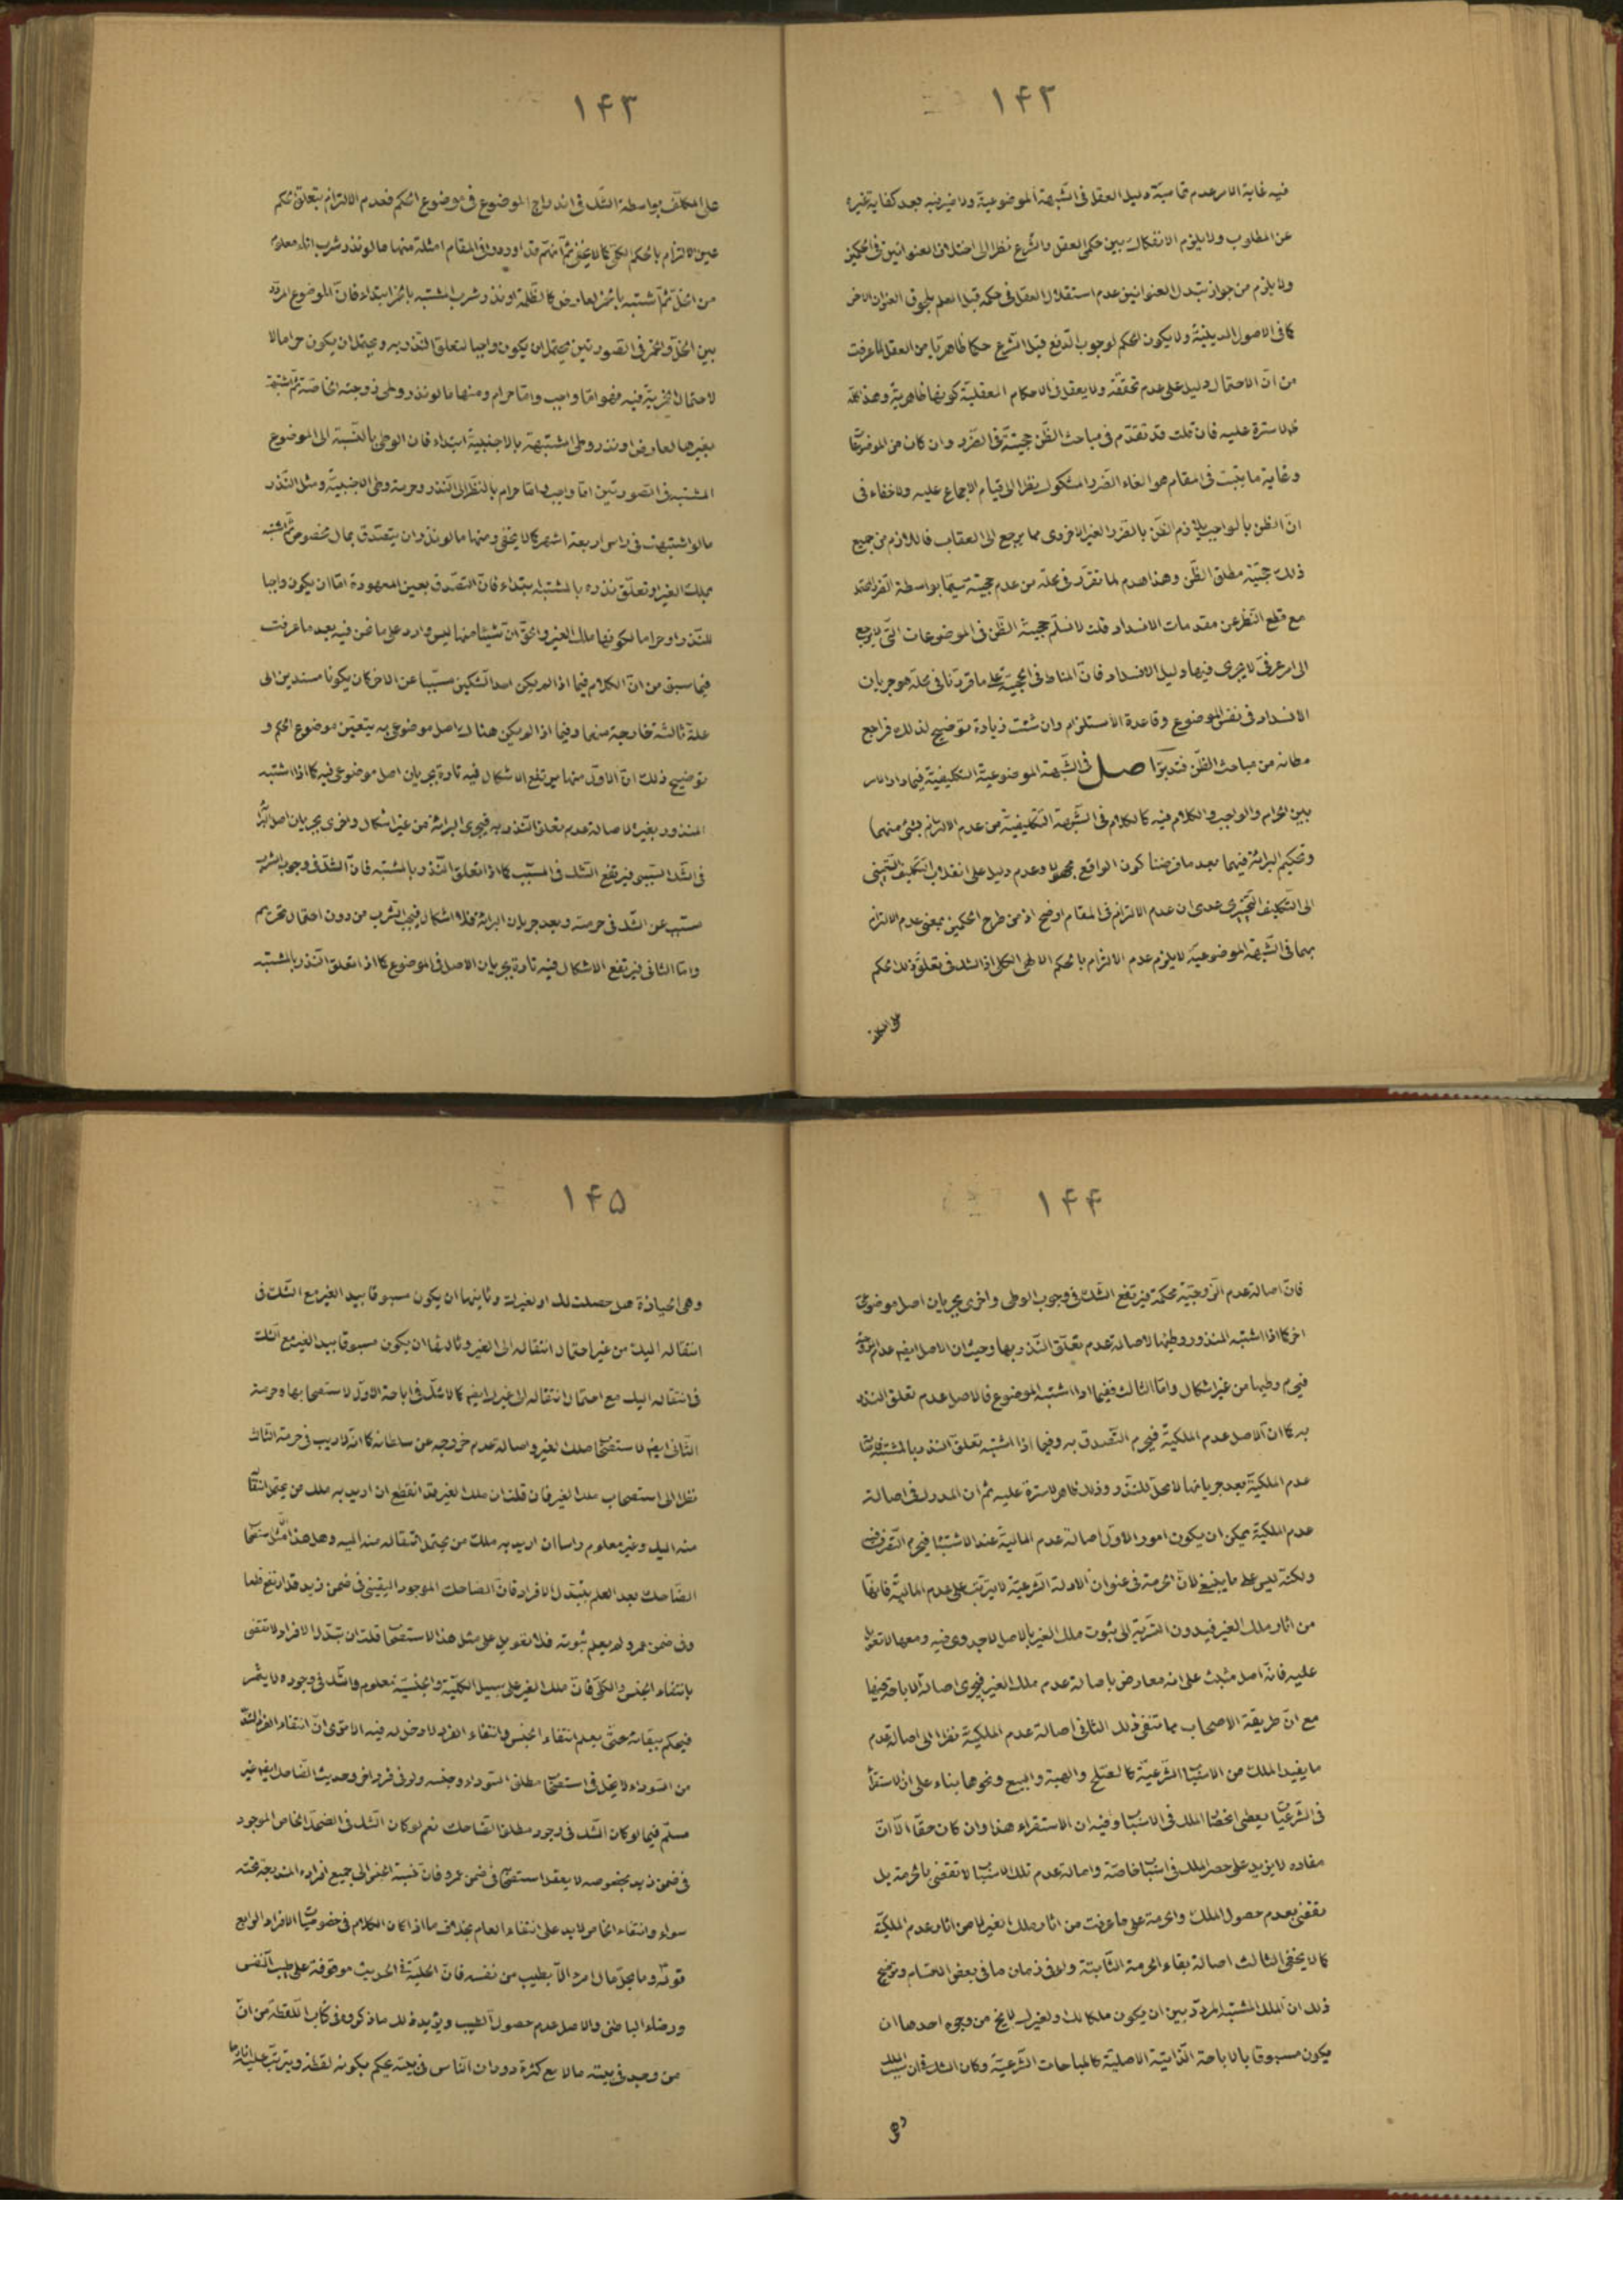 ١۴٢
فيه غاية الامر عدم قاسمية دليل العقل فى الشبهة الموضوعية ولا ضير فيه بعد كفاية غيره
عن المطلوب ولا يلزم الانفكاك بين حكمى العقل والشرع نظرا الى اختلاف العنوانين فى الحكمين
ولا يلزم من جواز تبدل العنوانين عدم استقلال العقل فى حكمه قبل العلم بلحوق العنوان الاخر
كما فى الاصول الدينية ولا يكون الحكم لوجوب الدفع قبل الشرع حكما ظاهريا من العقل لما عرفت
من ان الاحتمال دليل على عدم تحققه ولا يعقل فى الاحكام العقلية كونها ظاهرية وهذا
مما لا سترة عليه فان قلت قد تقدم فى مباحث الظن حجيته فى الضرر وان كان من الموضوعات
وغاية ما يثبت فى المقام هو الغاء الضرر المشكوك نظرا الى قيام الاجماع عليه ولا خفاء فى
ان الظن بالواجب يلازم الظن بالضرر الغير الاخروى مما يرجع الى العقاب فاللازم من جميع
ذلك حجية مطلق الظن وهذا هدم لما تقرر فى محله من عدم حجيته سيما بواسطة الضرر
مع قطع النظر عن مقدمات الانسداد قلت لا نسلم حجية الظن فى الموضوعات التى لا يرجع
الى امر عرفى لا يجرى فيها دليل الانسداد فان المناط فى الحجية على ما قررنا فى محله هو جريان
الانسداد فى نفس الموضوع وقاعدة الاستلزام وان شئت زيادة توضيح لذلك فراجع
مظانه من مباحث الظن فتدبر اصل فى الشبهة الموضوعية التكليفية فيما دار الامر
بين الحرام والواجب والكلام فيه كالكلام فى الشبهة التكليفية من عدم الالتزام بشئ منهما
وتحكيم البرائة فيهما بعد ما فرضنا كون الواقع مجهولا وعدم دليل على انقلاب التكليف التعيينى
الى التكليف التخييرى عدى ان عدم الالتزام فى المقام اوضح اذ من طرح الحكمين بمعنى عدم الالتزام
بهما فى الشبهة الموضوعية لا يلزم عدم الالتزام بالحكم الالهى الكلى اذ الشك فى تعلق ذلك الحكم
على المكلف
١۴٣
على المكلف بواسطة الشك فى اندراج الموضوع فى موضوع الحكم فعدم الالتزام بتعلق الحكم
عين الالتزام بالحكم الكلى كما لا يخفى ثم انهم قد اوردوا فى المقام امثلة منها ما لو نذر شرب اناء معلوم
من الخل ثم اشتبه بالخمر لعارض كالظلمة او نذر شرب المشتبه بالخمر ابتداء فان الموضوع المردد
بين الخل والخمر فى الصورتين يحتمل ان يكون واجبا لتعلق النذر به ويحتمل ان يكون حراما لا
لاحتمال الخمرية فيه فهو اما واجب واما حرام ومنها ما لو نذر وطى زوجته الخاصة ثم اشتبهت
بغيرها لعارض او نذر وطى المشتبهة بالاجنبية ابتداء فان الوطى بالنسبة الى الموضوع
المشتبه فى الصورتين اما واجب واما حرام بالنظر الى النذر وحرمة وطى الاجنبية ومثل النذر
ما لو اشتبهت فى راس اربعة اشهر كما لا يخفى ومنها ما لو نذر ان يتصدق بمال مخصوص ثم اشتبه
بملك الغير او تعلق نذره بالمشتبه ابتداء فان التصدق بعين المعهودة اما ان يكون واجبا
للنذر او حراما لكونها ملك الغير والحق ان شيئا منها ليس وارد على ما نحن فيه بعد ما عرفت
فيما سبق من ان الكلام فيما اذا لم يكن احد الشكين مسببا عن الاخر كان يكونا مستندين الى
علة ثالثة خارجة منهما وفيما اذا لم يكن هناك اصل موضوعى به يتعين موضوع الحكم و
توضيح ذلك ان الاول منها يرتفع الاشكال فيه تارة بجريان اصل موضوعى فيه كما اذا اشتبه
المنذور بغيره لاصالة عدم تعلق النذر به فيجرى البرائة من غير اشكال واخرى بجريان اصل البرائة
فى الشك السببى فيرتفع الشك فى المسبب كما اذا تعلق النذر بالمشتبه فان الشك فى وجوب الشرب
مسبب عن الشك فى حرمته وبعد جريان البرائة فلا اشكال فيجب الشرب من دون احتمال تحريم
واما الثانى فيرتفع الاشكال فيه تارة بجريان الاصل فى الموضوع كما اذا تعلق النذر بالمشتبه
١۴۴
فان اصالة عدم الزوجية محكمة فيرتفع الشك فى وجوب الوطى واخرى بجريان اصل موضوعى
اخر كما اذا اشتبه المنذور وطيها لاصالة عدم تعلق النذر بها وحيث ان الاصل ايضا عدم الزوجية
فيحرم وطيها من غير اشكال واما الثالث ففيما اذا اشتبه الموضوع فالاصل عدم تعلق النذر
به كما ان الاصل عدم الملكية فيحرم التصدق به وفيما اذا اشتبه تعلق النذر بالمشتبه فاصالة
عدم الملكية بعد جريانها لا محل للنذر وذلك ظاهر لا سترة عليه ثم ان المدرك فى اصالة
عدم الملكية يمكن ان يكون امور الاول اصالة عدم المالية عند الاشتباه فيحرم التصرف
ولكنه ليس على ما ينبغى لان الحرمة فى عنوان الادلة الشرعية لا يترتب على عدم المالية فانها
من اثار ملك الغير فبدون الترتب الى ثبوت ملك الغير بالاصل لا جدوى فيه ومعها لا تعويل
عليه فانه اصل مثبت على انه معارض باصالة عدم ملك الغير فيجرى اصالة الاباحة فيها
مع ان طريقة الاصحاب مما تنفى ذلك الثانى اصالة عدم الملكية نظرا الى اصالة عدم
ما يفيد الملك من الاسباب الشرعية كالصلح والهبة والبيع ونحوها بناء على ان الاستقراء
فى الشرعيات يعطى انحصار الملك فى الاسباب وفيه ان الاستقراء هذا وان كان حقا الا ان
مفاده لا يزيد على حصر الملك فى اسباب خاصة واصالة عدم تلك الاسباب لا تقضى بالحرمة بل
تقضى بعدم حصول الملك والحرمة على ما عرفت من اثار ملك الغير لا من اثار عدم الملكية
كما لا يخفى الثالث اصالة بقاء الحرمة الثابتة ولو فى زمان ما فى بعض الاقسام وتوضيح
ذلك ان الملك المشتبه المردد بين ان يكون ملكا لك ولغيرك لا يخ من وجوه احدها ان
يكون مسبوقا بالاباحة الذاتية الاصلية كالمباحات الشرعية وكان الشك فى ان سبب الملك
وهى
١۴۵
وهى الحيازة هل حصلت لك او لغيرك وثانيها ان يكون مسبوقا بيد الغير مع الشك فى
انتقاله اليك من غير احتمال انتقاله الى الغير وثالثها ان يكون مسبوقا بيد الغير مع الشك
فى انتقاله اليك مع احتمال انتقاله الى غيرك ايضا كما لا شك فى اباحة الاول لاستصحابها وحرمة
الثانى ايضا لاستصحاب ملك الغير واصالة عدم خروجه عن سلطانه كما انه لا ريب فى حرمة الثالث
نظرا الى استصحاب ملك الغير فان قلت ان ملك الغير قد انقطع ان اريد به ملك من يحتمل انتقاله
منه اليك وغير معلوم راسا ان اريد به ملك من يحتمل انتقاله منه اليه وهل هذا الا مثل استصحاب
الضاحك بعد العلم بتبدل الافراد فان الضاحك الموجود اليقينى فى ضمن زيد قد ارتفع قطعا
وفى ضمن عمرو لم يعلم ثبوته فلا تعويل على مثل هذا الاستصحاب قلت ان تبدل الافراد لا تقضى
بانتفاء الجنس والكلى فان ملك الغير على سبيل الكلية والجنسية معلوم والشك فى وجوده لا يثمر
فيحكم ببقائه حتى يعلم انتفاء الجنس وانتفاء الفرد لا دخل له فيه الا ترى ان انتفاء الفرد الشديد
من السواد لا يخل فى استصحاب مطلق السواد وجنسه ولو فى فرد اخر وحديث الضاحك ايضا غير
مسلم فيما لو كان الشك فى وجود مطلق الضاحك نعم لو كان الشك فى الضحك الخاص الموجود
فى ضمن زيد بخصوصه لا يعقل استصحابه فى ضمن عمرو فان نسبة الجنس الى جميع افراده المندرجة تحته
سواء وانتفاء الخاص لا يدل على انتفاء العام بخلاف ما اذا كان الكلام فى خصوصيات الافراد الرابع
قوله وما يحل مال امرء الا بطيب من نفسه فان الحلية فى الحديث موقوفة على طيب النفس
ورضاء الباطنى والاصل عدم حصول الطيب ويؤيد ذلك ما ذكروه فى كتاب اللقطة من ان
من وجد فى بيته مالا مع كثرة دوران الناس فى بيته يحكم بكونه لقطة ويترتب عليه اثارها